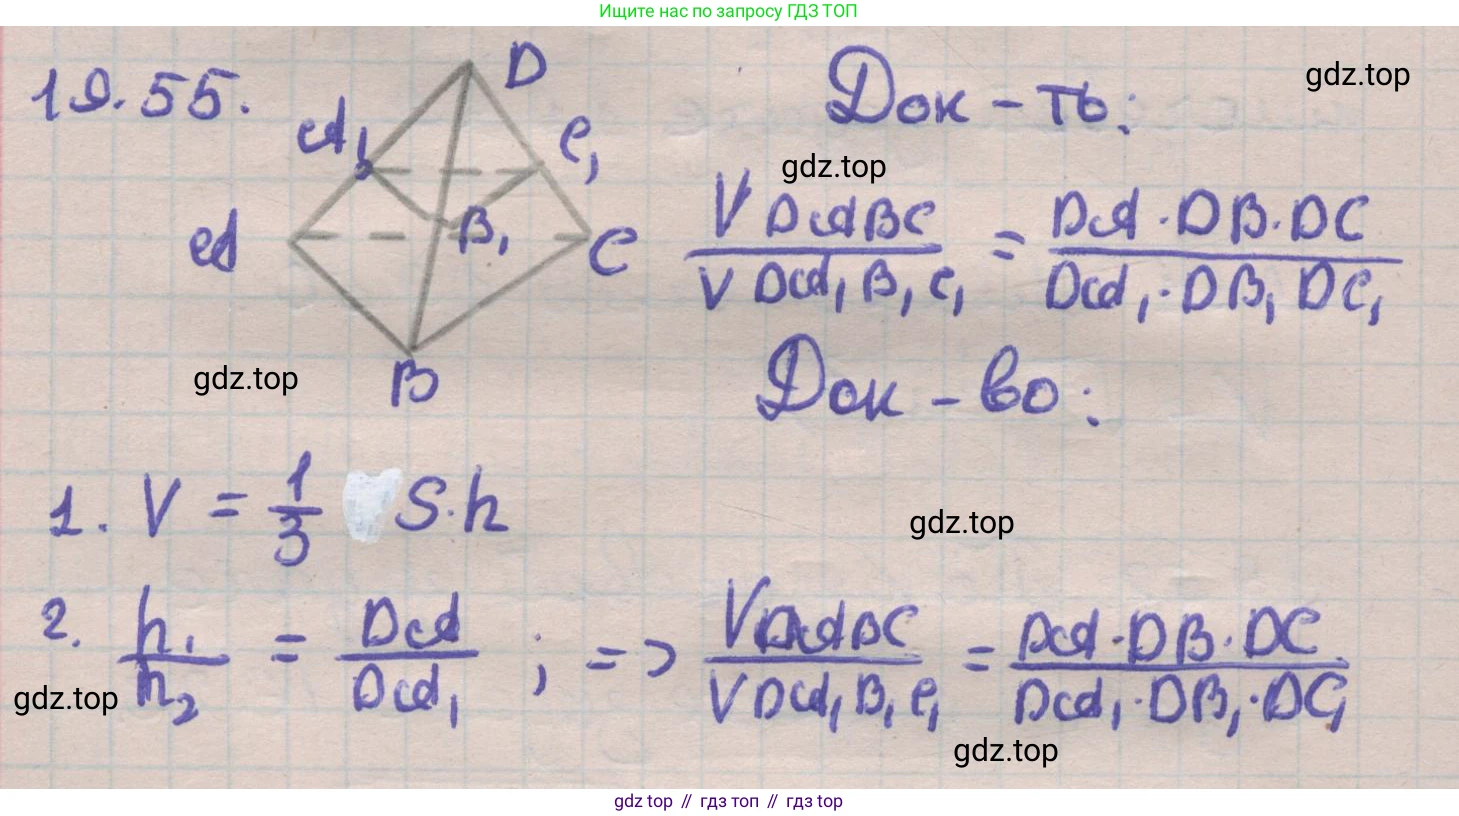 Ищите нас по запросу ГДЗ ТОП
19.55.
D
A₁
C₁
A
B₁
C
B
Док-ть:
gdz.top
gdz.top
V DABC / V DA₁B₁C₁ = DA · DB · DC / DA₁ · DB₁ DC₁
gdz.top
Док-во:
1. V = 1/3 S·h
gdz.top
2. h₁/h₂ = DA/DA₁ ; => V DABC / V DA₁B₁C₁ = DA · DB · DC / DA₁ · DB₁ · DC₁
gdz.top
gdz.top
gdz top // гдз топ // гдз top